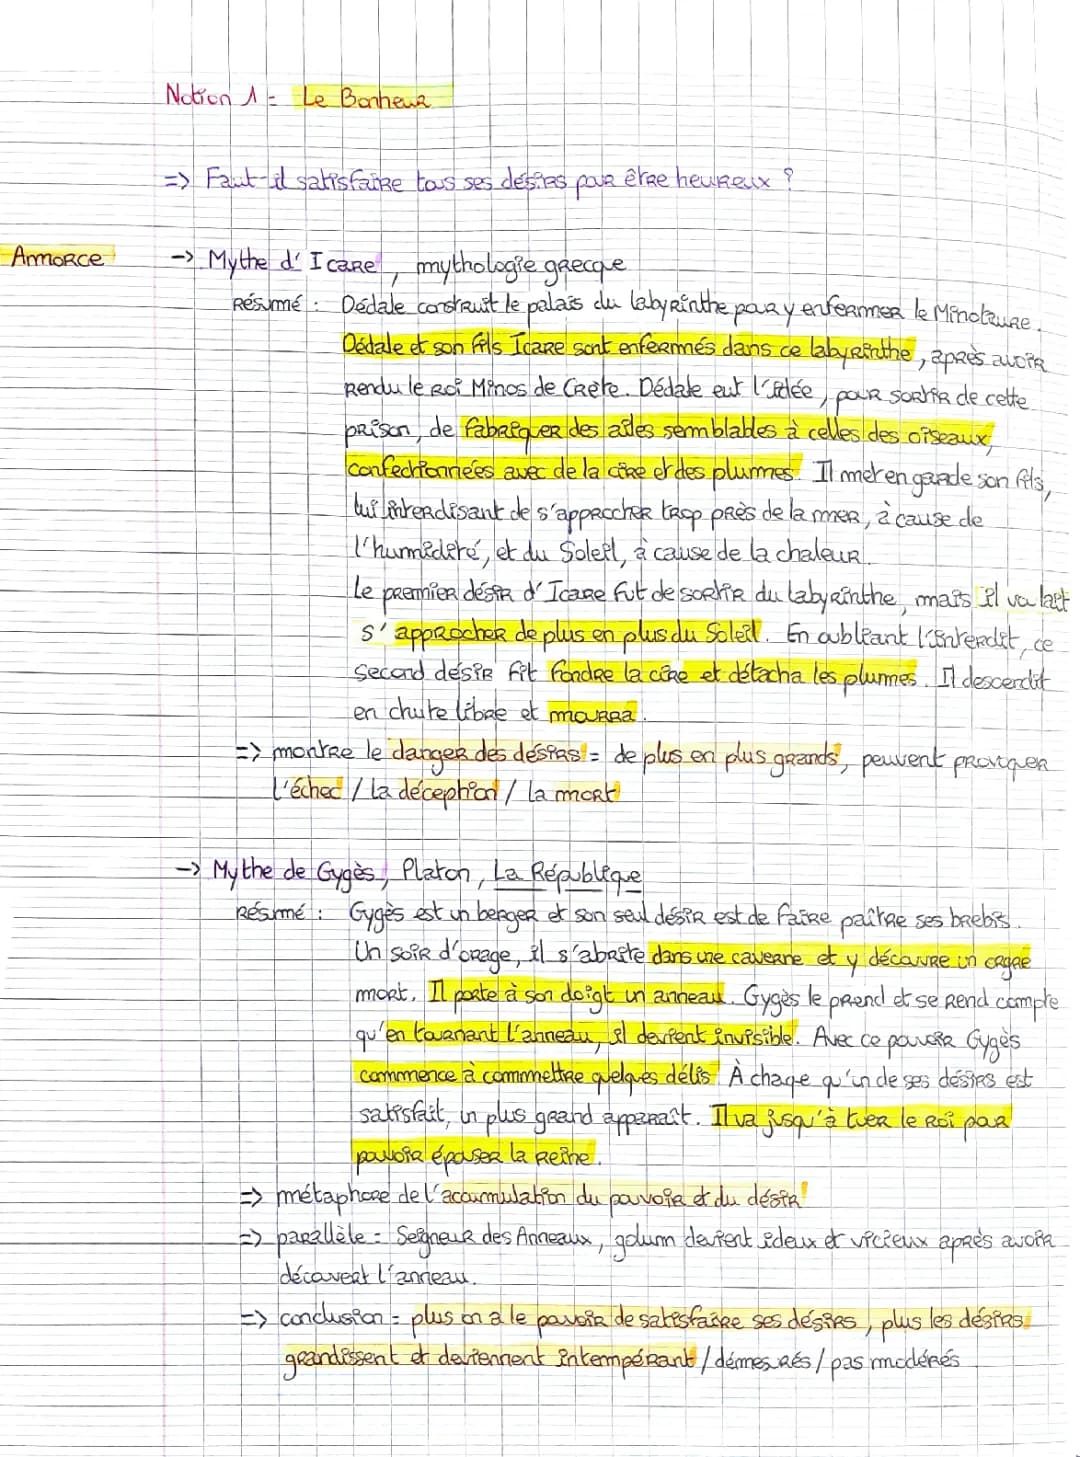 Notion 1 = Le Bonheur
=> Faut-il satisfaire tous ses désirs pour être heureux ?
Amorce
-> Mythe d'Icare, mythologie grecque
Résumé : Dédale construit le palais du labyrinthe pour y enfermer le Minotaure.
Dédale et son fils Icare sont enfermés dans ce labyrinthe, après avoir
rendu le roi Minos de Crète. Dédale eut l'idée, pour sortir de cette
prison, de fabriquer des ailes semblables à celles des oiseaux,
confectionnées avec de la cire et des plumes. Il met en garde son fils,
lui interdisant de s'approcher trop près de la mer, à cause de
l'humidité, et du Soleil, à cause de la chaleur.
Le premier désir d'Icare fut de sortir du labyrinthe, mais il voulait
s'approcher de plus en plus du Soleil. En oubliant l'interdit, ce
second désir fit fondre la cire et détacha les plumes. Il descendit
en chute libre et mourra.
=> montre le danger des désirs = de plus en plus grands, peuvent provoquer
l'échec / la déception / la mort
-> Mythe de Gygès, Platon, La République
Résumé : Gygès est un berger et son seul désir est de faire paître ses brebis.
Un soir d'orage, il s'abrite dans une caverne et y découvre un cagre
mort. Il porte à son doigt un anneau. Gygès le prend et se rend compte
qu'en tournant l'anneau, il devient invisible. Avec ce pouvoir Gygès
commence à commettre quelques délis. À chaque qu'un de ses désirs est
satisfait, un plus grand apparaît. Il va jusqu'à tuer le roi par
pouvoir épouser la reine.
=> métaphore de l'accumulation du pouvoir et du désir
=> parallèle = Seigneur des Anneaux, golum devient ideux et vicieux après avoir
découvert l'anneau.
=> conclusion = plus on a le pouvoir de satisfaire ses désirs, plus les désirs
grandissent et deviennent intempérant / démesurés / pas modérés